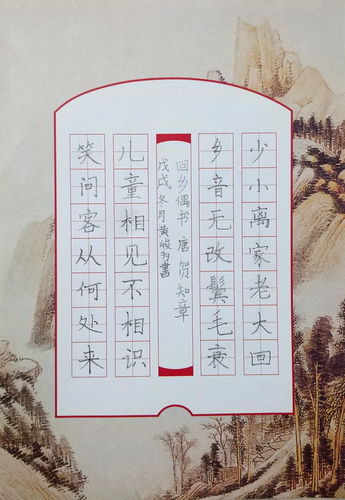 少小离家老大回
乡音无改鬓毛衰
回乡偶书 唐 贺知章
戊戌冬月黄羽書
儿童相见不相识
笑问客从何处来